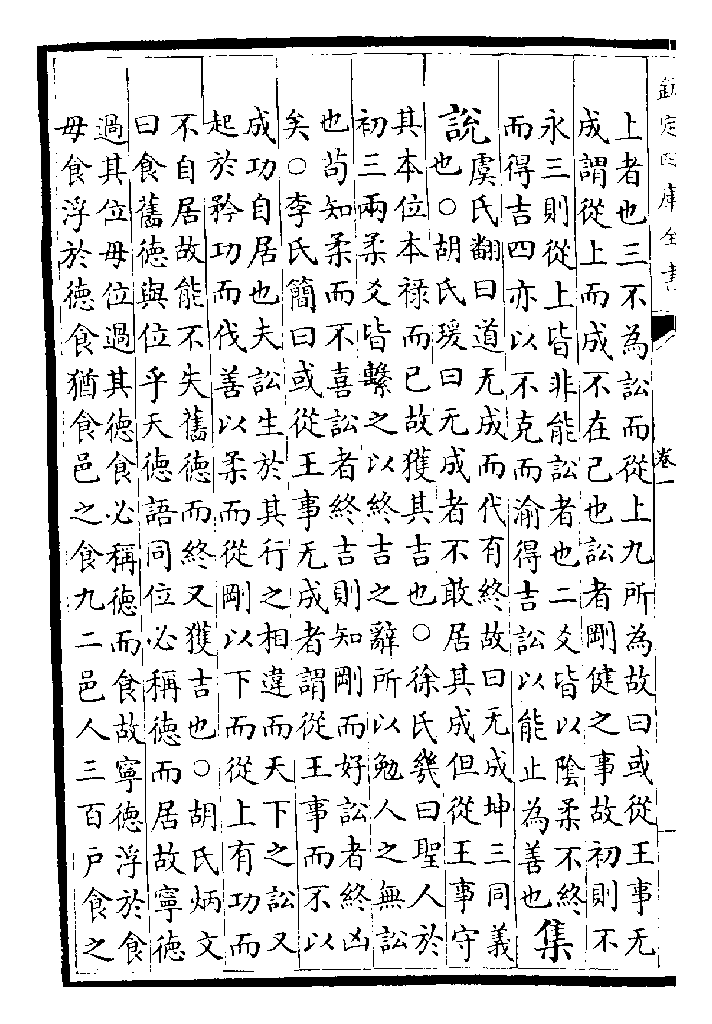 欽定四庫全書
卷一
上者也三不為訟而從上九所為故曰或從王事无
成謂從上而成不在己也訟者剛健之事故初則不
永三則從上皆非能訟者也二爻皆以陰柔不終
而得吉四亦以不克而渝得吉訟以能止為善也
集
說
虞氏翻曰道无成而代有終故曰无成坤三同義
也○胡氏瑗曰无成者不敢居其成但從王事守
其本位本祿而已故獲其吉也○徐氏幾曰聖人於
初三兩柔爻皆繫之以終吉之辭所以勉人之無訟
也茍知柔而不喜訟者終吉則知剛而好訟者終凶
矣○李氏簡曰或從王事无成者謂從王事而不以
成功自居也夫訟生於其行之相違而天下之訟又
起於矜功而伐善以柔而從剛以下而從上有功而
不自居故能不失舊徳而終又獲吉也○胡氏炳文
曰食舊徳與位乎天徳語同位必稱徳而居故寧徳
過其位毋位過其徳食必稱徳而食故寧徳浮於食
毋食浮於徳食猶食邑之食九二邑人三百户食之